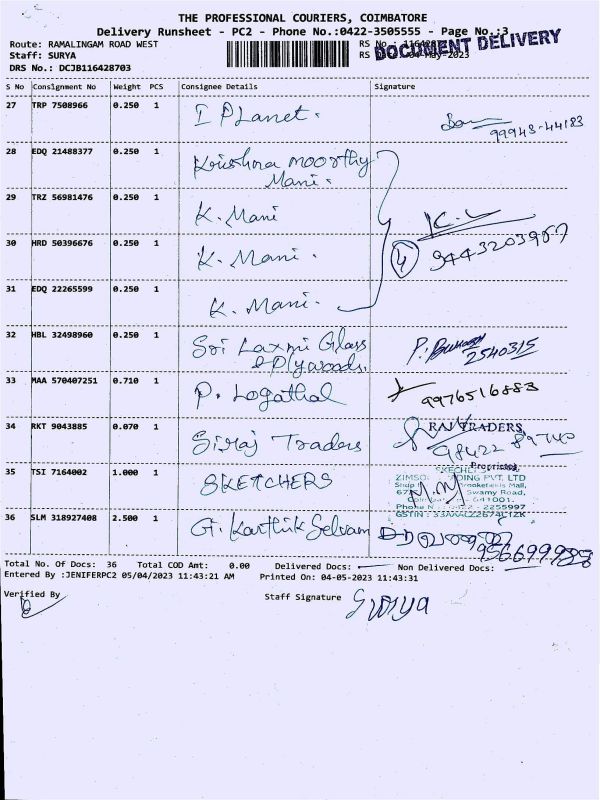 THE PROFESSIONAL COURIERS, COIMBATORE
Delivery Runsheet - PC2 - Phone No.:0422-3505555 - Page No.:3
Route: RAMALINGAM ROAD WEST
RS No.
DOCUMENT DELIVERY
Staff: SURYA
RS 04-May-2023
DRS No.: DCJB116428703
S No Consignment No Weight PCS Consignee Details Signature
27 TRP 7508966 0.250 1 I PLanet.
99943-44183
28 EDQ 21488377 0.250 1 Krishna moorthy
Mani.
29 TRZ 56981476 0.250 1 K. Mani
30 HRD 50396676 0.250 1 K. Mani.
4 9443203967
31 EDQ 22265599 0.250 1 K. Mani.
32 HBL 32498960 0.250 1 Sri Laxmi Glass
& Plywoods.
2540315
33 MAA 570407251 0.710 1 P. Logathal
9976516883
34 RKT 9043885 0.070 1 Siraj Traders
RAJ TRADERS,
98422 89740
Proprietor
35 TSI 7164002 1.000 1 SKETCHERS
SKECHERS
PVT. LTD
Brookefields Mall,
Swamy Road,
641001.
Phone N 0422 - 2255997
36 SLM 318927408 2.500 1 G. Karthik Selvam
Total No. Of Docs: 36 Total COD Amt: 0.00 Delivered Docs: Non Delivered Docs:
Entered By :JENIFERPC2 05/04/2023 11:43:21 AM Printed On: 04-05-2023 11:43:31
Verified By
Staff Signature Surya